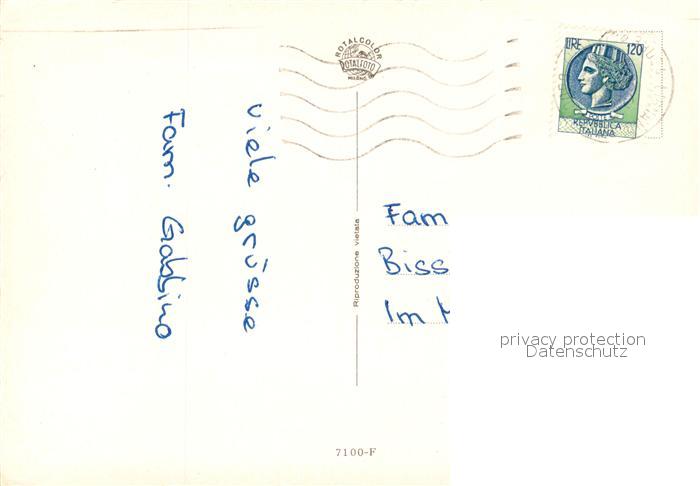 ROTALCOLOR
ROTALFOTO
MILANO
LIRE 120
POSTE
REPVBBLICA
ITALIANA
Viele grüsse
Fam.
Riproduzione vietata
Fam
Biss
Im
privacy protection
Datenschutz
7100-F